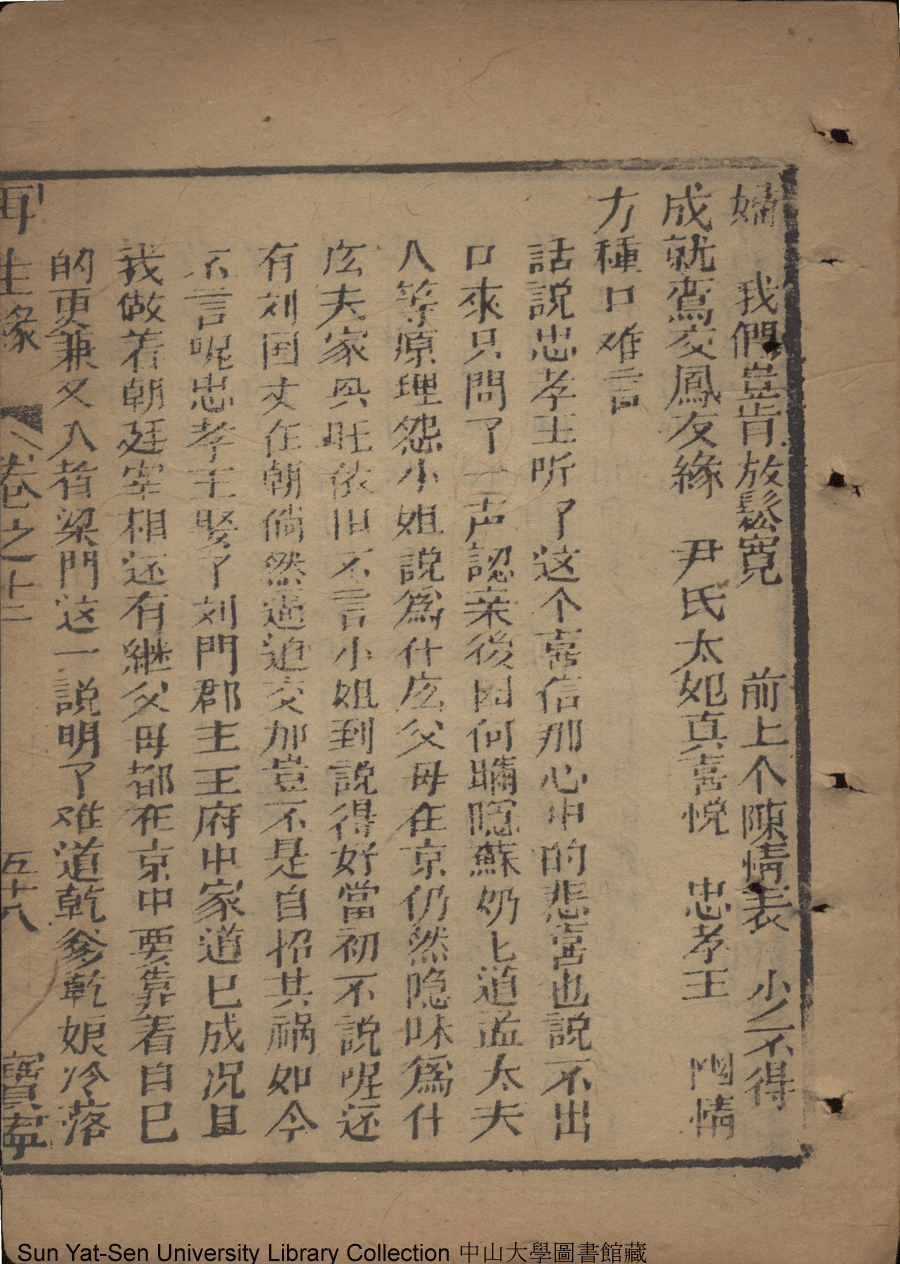 婦　我們豈肯放鬆寬　前上个陳情表　少不得
成就鸞交鳳友緣　尹氏太妃真喜悅　忠孝王　情
万種口难言
話說忠孝王听了这个喜信那心中的悲喜也說不出
口來只問了一声認亲後因何瞞隱蘇奶上道孟太夫
人等原理怨小姐說爲什庅父母在京仍然隐昧爲什
庅夫家興旺依旧不言小姐到說得好當初不說呢还
有刘囯丈在朝倘然逼迫交加豈不是自招其祸如今
不言呢忠孝王娶了刘門郡主王府中家道已成况且
我做着朝廷宰相还有継父母都在京中要靠着自已
的更兼又入着梁門这一說明了难道乾爹乾娘冷落
再生缘　卷之十二　五十八　寶寧
Sun Yat-Sen University Library Collection 中山大學圖書館藏